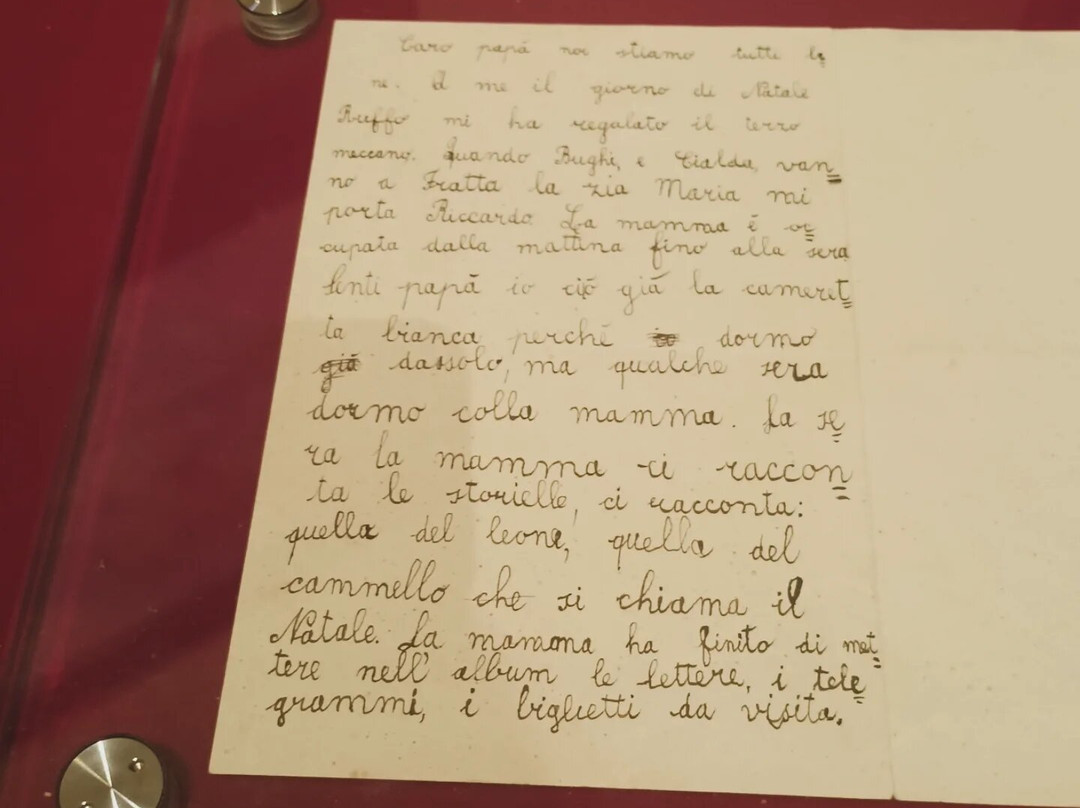 Caro papá noi stiamo tutti be
ne. A me il giorno di Natale
Ruffo mi ha regalato il terzo
meccano. Quando Bughi, e Cialda, van=
no a Fratta la zia Maria mi
porta Riccardo. La mamma é oc=
cupata dalla mattina fino alla sera
Senti papá io ció giá la cameret=
ta bianca perché dormo
giá dassolo, ma qualche sera
dormo colla mamma. La se=
ra la mamma ci raccon=
ta le storielle, ci racconta:
quella del leone, quella del
cammello che si chiama il
Natale. La mamma ha finito di met=
tere nell' album le lettere, i tele=
grammi, i biglietti da visita.